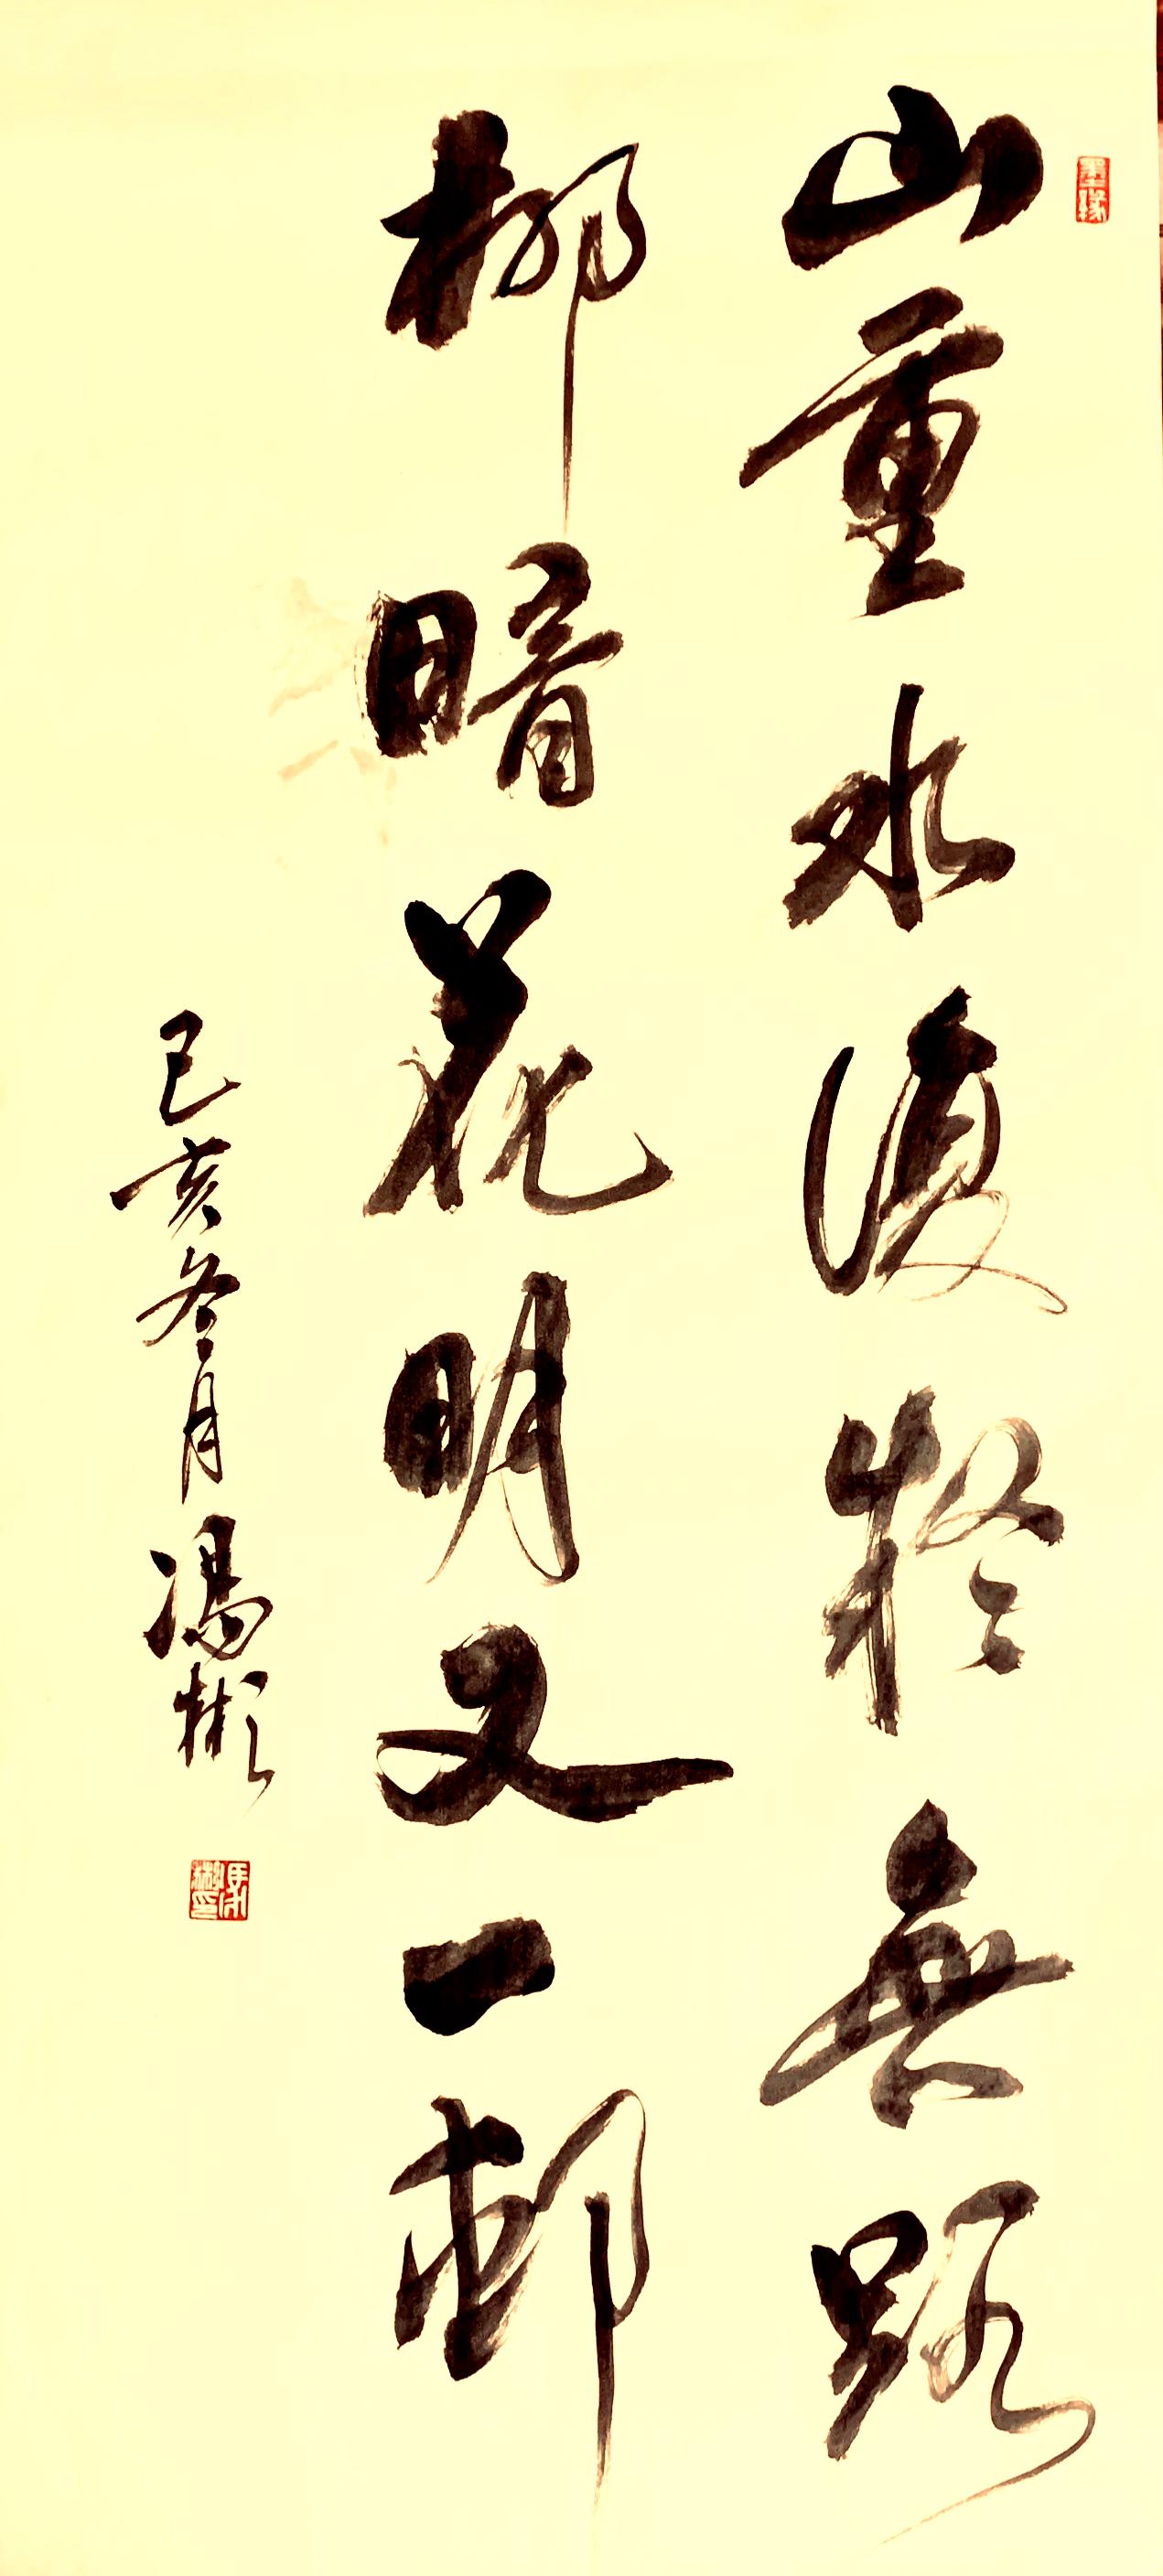 山重水復疑無路
柳暗花明又一邨
己亥冬月馮彬
墨緣